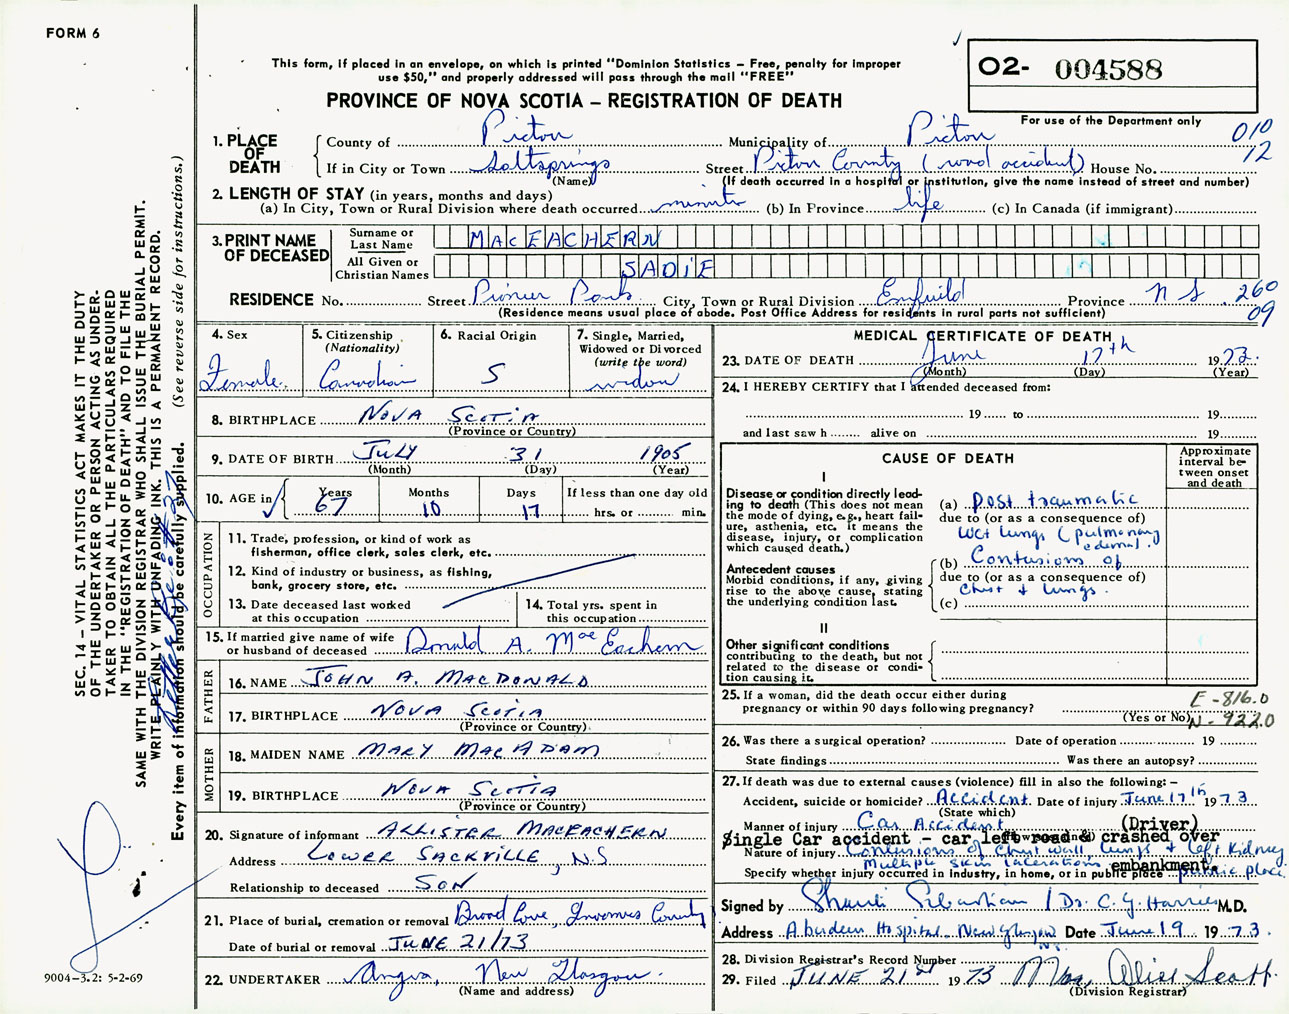 FORM 6
This form, if placed in an envelope, on which is printed "Dominion Statistics – Free, penalty for improper
use $50," and properly addressed will pass through the mail "FREE"
PROVINCE OF NOVA SCOTIA – REGISTRATION OF DEATH
O2- 004588
For use of the Department only
010
12
1. PLACE OF DEATH
County of Pictou Municipality of Pictou
If in City or Town Saltsprings Street Pictou County (road accident) House No.
(Name) (If death occurred in a hospital or institution, give the name instead of street and number)
2. LENGTH OF STAY (in years, months and days)
(a) In City, Town or Rural Division where death occurred minutes (b) In Province life (c) In Canada (if immigrant)
3. PRINT NAME OF DECEASED
Surname or Last Name MACEACHERN
All Given or Christian Names SADIE
RESIDENCE No. Street Pioneer Park City, Town or Rural Division Enfield Province N S. 260
09
(Residence means usual place of abode. Post Office Address for residents in rural parts not sufficient)
4. Sex
Female
5. Citizenship
(Nationality)
Canadian
6. Racial Origin
S
7. Single, Married,
Widowed or Divorced
(write the word)
widow
8. BIRTHPLACE NOVA SCOTIA
(Province or Country)
9. DATE OF BIRTH JULY 31 1905
(Month) (Day) (Year)
10. AGE in
Years Months Days If less than one day old
67 10 17 hrs. or min.
OCCUPATION
11. Trade, profession, or kind of work as
fisherman, office clerk, sales clerk, etc.
12. Kind of industry or business, as fishing,
bank, grocery store, etc.
13. Date deceased last worked
at this occupation
14. Total yrs. spent in
this occupation
15. If married give name of wife
or husband of deceased Donald A. MacEachern
FATHER
16. NAME JOHN A. MACDONALD
17. BIRTHPLACE NOVA SCOTIA
(Province or Country)
MOTHER
18. MAIDEN NAME MARY MACADAM
19. BIRTHPLACE NOVA SCOTIA
(Province or Country)
20. Signature of informant ALLISTER MACEACHERN
Address LOWER SACKVILLE, N.S.
Relationship to deceased SON
21. Place of burial, cremation or removal Broad Cove, Inverness County
Date of burial or removal JUNE 21/73
22. UNDERTAKER Angus, New Glasgow.
(Name and address)
MEDICAL CERTIFICATE OF DEATH
23. DATE OF DEATH June 17th 1973.
(Month) (Day) (Year)
24. I HEREBY CERTIFY that I attended deceased from:
19 to 19
and last saw h alive on 19
CAUSE OF DEATH
Approximate
interval be-
tween onset
and death
I
Disease or condition directly lead-
ing to death (This does not mean
the mode of dying, e.g., heart fail-
ure, asthenia, etc. It means the
disease, injury, or complication
which caused death.)
(a) post traumatic
due to (or as a consequence of)
wet lungs (pulmonary
edema).
Antecedent causes
Morbid conditions, if any, giving
rise to the above cause, stating
the underlying condition last.
(b) Contusions of
due to (or as a consequence of)
chest & lungs.
(c)
II
Other significant conditions
contributing to the death, but not
related to the disease or condi-
tion causing it.
25. If a woman, did the death occur either during
pregnancy or within 90 days following pregnancy?
(Yes or No)
E-816.0
N-9220
26. Was there a surgical operation? Date of operation 19
State findings Was there an autopsy?
27. If death was due to external causes (violence) fill in also the following: –
Accident, suicide or homicide? Accident Date of injury June 17th 1973
(State which)
Manner of injury Car Accident (Driver)
Single Car accident - car left road & crashed over
embankment.
Nature of injury Contusions of chest wall, lungs & left kidney
Multiple skin lacerations
Specify whether injury occurred in industry, in home, or in public place public place.
Signed by Dr. C. G. Harries M.D.
Address Aberdeen Hospital, New Glasgow N.S. Date June 19 1973.
28. Division Registrar's Record Number
29. Filed JUNE 21st 1973 Mrs. Alice Scott
(Division Registrar)
SEC. 14 – VITAL STATISTICS ACT MAKES IT THE DUTY
OF THE UNDERTAKER OR PERSON ACTING AS UNDER-
TAKER TO OBTAIN ALL THE PARTICULARS REQUIRED
IN THE "REGISTRATION OF DEATH" AND TO FILE THE
SAME WITH THE DIVISION REGISTRAR WHO SHALL ISSUE THE BURIAL PERMIT.
WRITE PLAINLY WITH UNFADING INK. THIS IS A PERMANENT RECORD.
Every item of information should be carefully supplied. (See reverse side for instructions.)
9004–3.2: 5-2-69